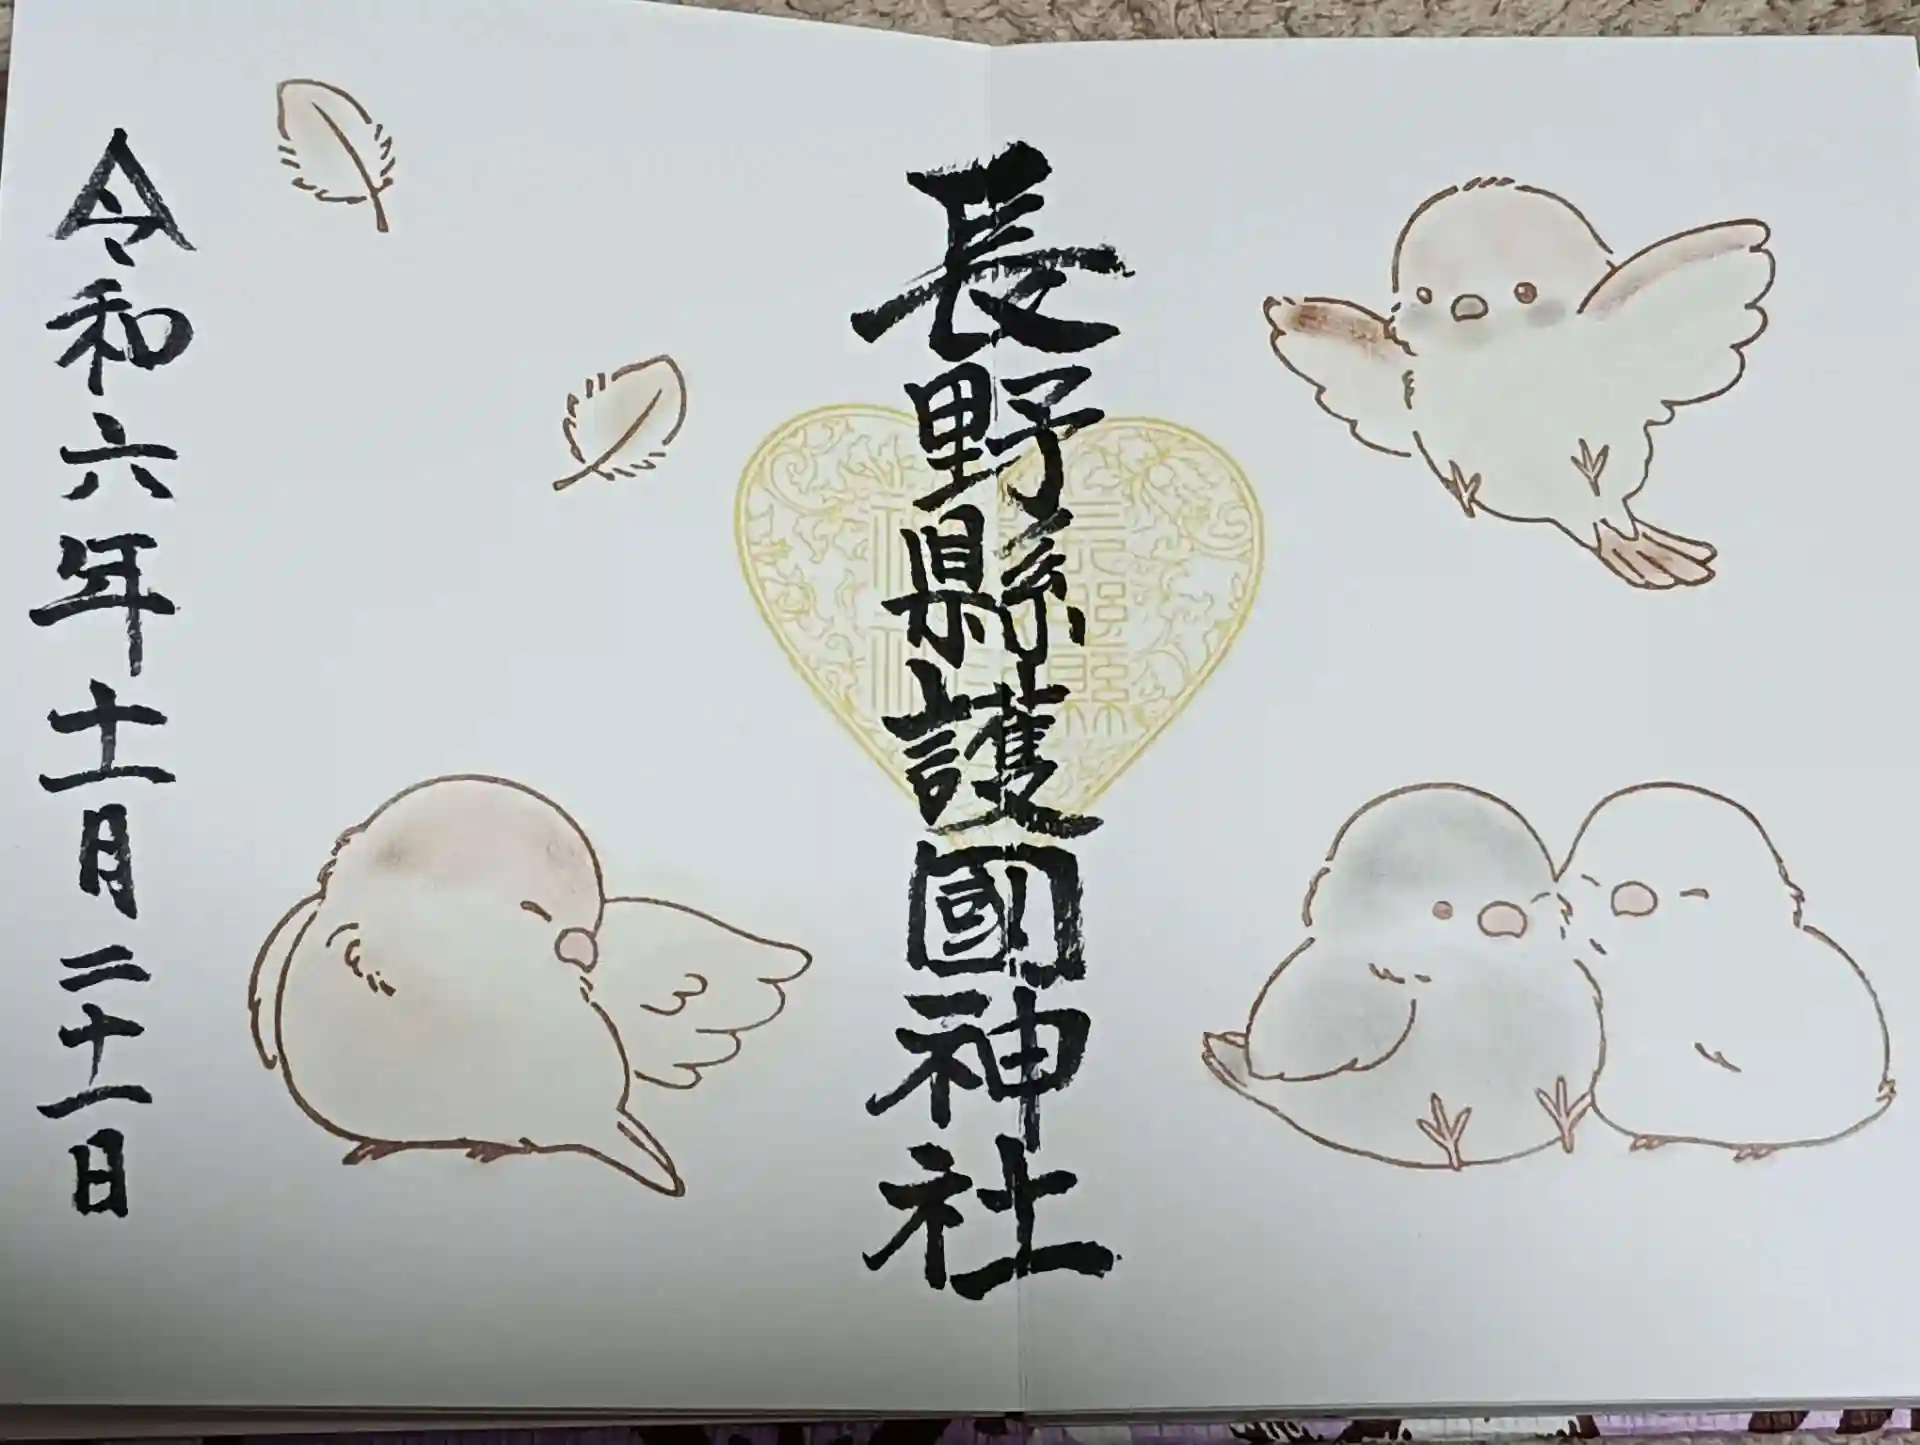 長野縣護國神社
令和六年十一月二十一日